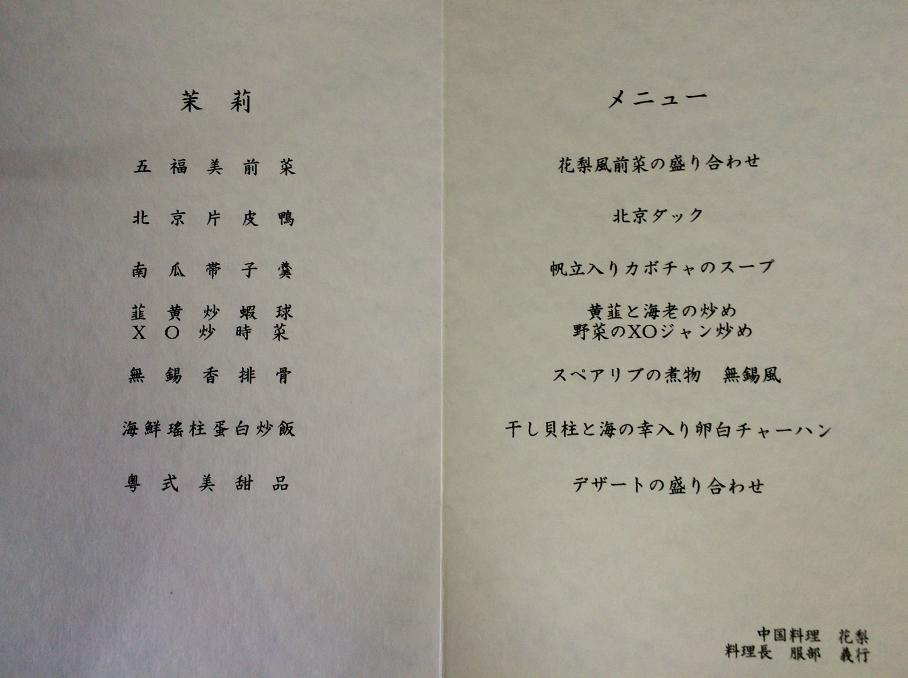 茉莉
五福美前菜
北京片皮鴨
南瓜帯子羹
韮黄炒蝦球
XO炒時菜
無錫香排骨
海鮮瑤柱蛋白炒飯
粵式美甜品
メニュー
花梨風前菜の盛り合わせ
北京ダック
帆立入りカボチャのスープ
黄韮と海老の炒め
野菜のXOジャン炒め
スペアリブの煮物　無錫風
干し貝柱と海の幸入り卵白チャーハン
デザートの盛り合わせ
中国料理　花梨
料理長　服部　義行